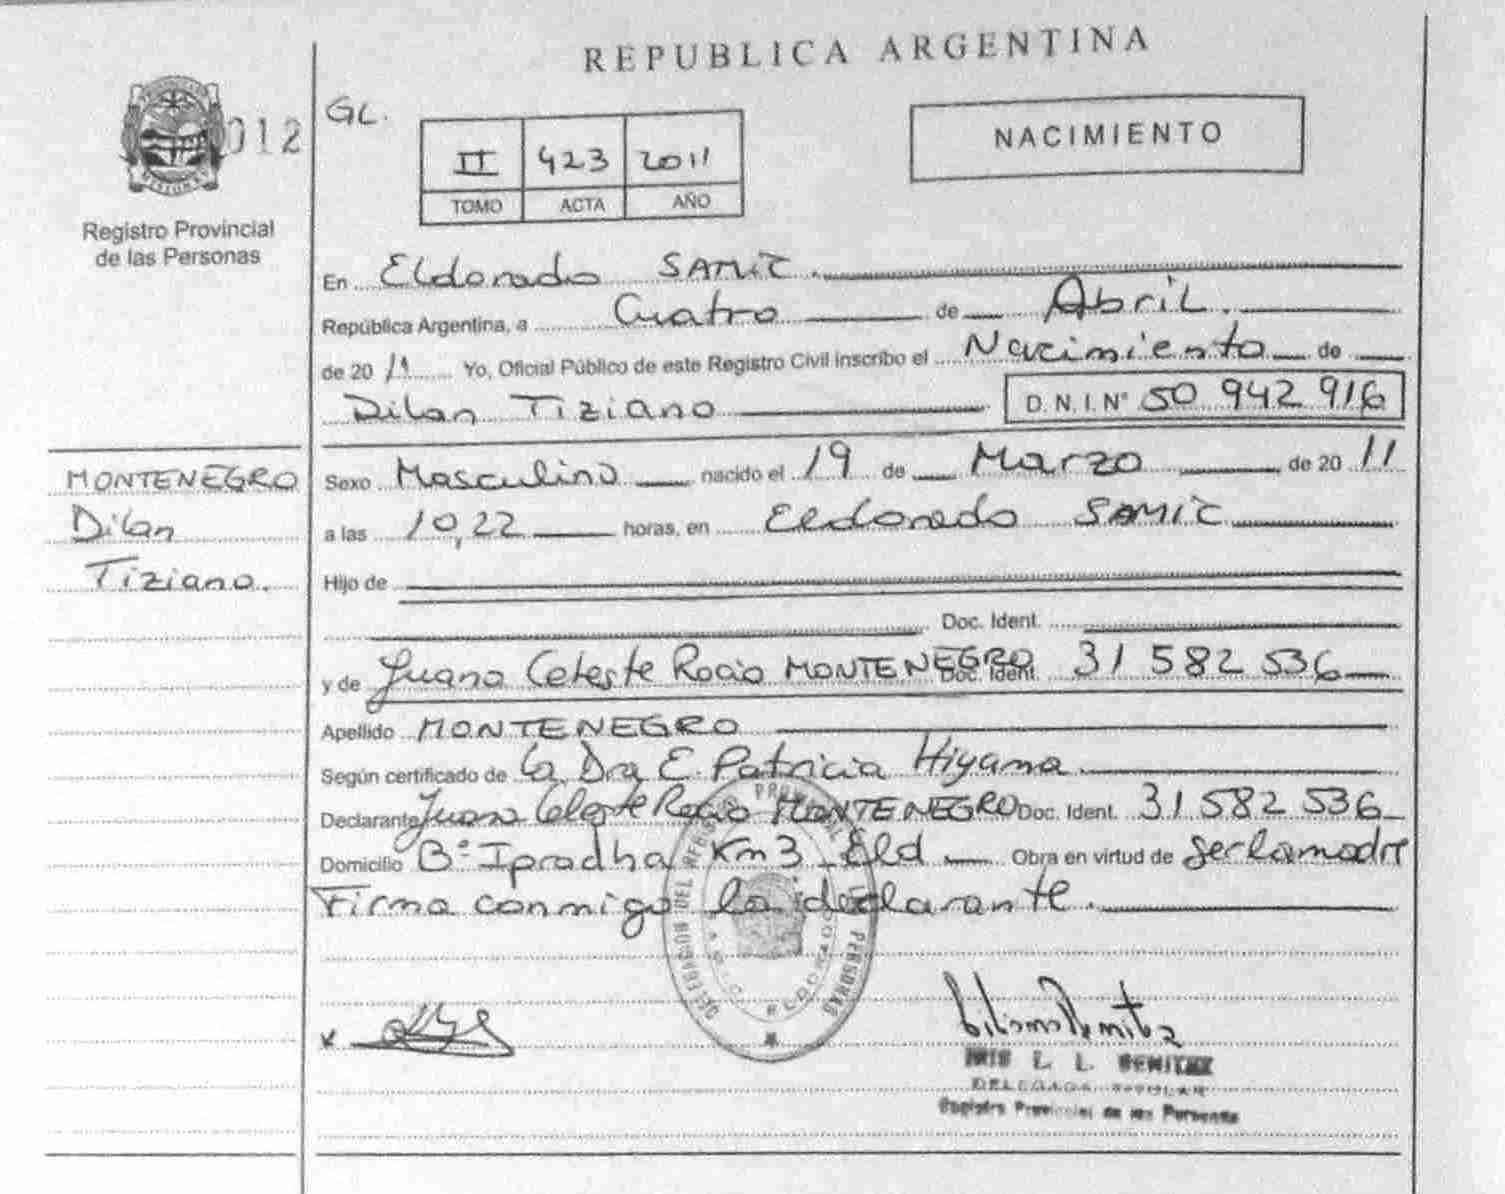 REPUBLICA ARGENTINA
012
GL.
NACIMIENTO
II 423 2011
TOMO ACTA AÑO
Registro Provincial
de las Personas
En Eldorado SAMIC.
República Argentina, a Cuatro de Abril.
de 2011 Yo, Oficial Público de este Registro Civil inscribo el Nacimiento de
Dilan Tiziano D.N.I. N° 50 942 916
MONTENEGRO
Dilan
Tiziano.
Sexo Masculino nacido el 19 de Marzo de 2011
a las 10,22 horas, en Eldorado SAMIC
Hijo de
Doc. Ident.
y de Juana Celeste Rocio MONTENEGRO Doc. Ident. 31 582 536
Apellido MONTENEGRO
Según certificado de la Dra E. Patricia Hiyama
Declarante Juana Celeste Rocio MONTENEGRO Doc. Ident. 31 582 536
Domicilio B° Ipradha Km3 Eld Obra en virtud de ser la madre
Firma conmigo la declarante.
DELEGACION DEL REGISTRO PROVINCIAL PERSONAS
ELDORADO
L. L. BENITEZ
DELEGADA TITULAR
Registro Provincial de las Personas